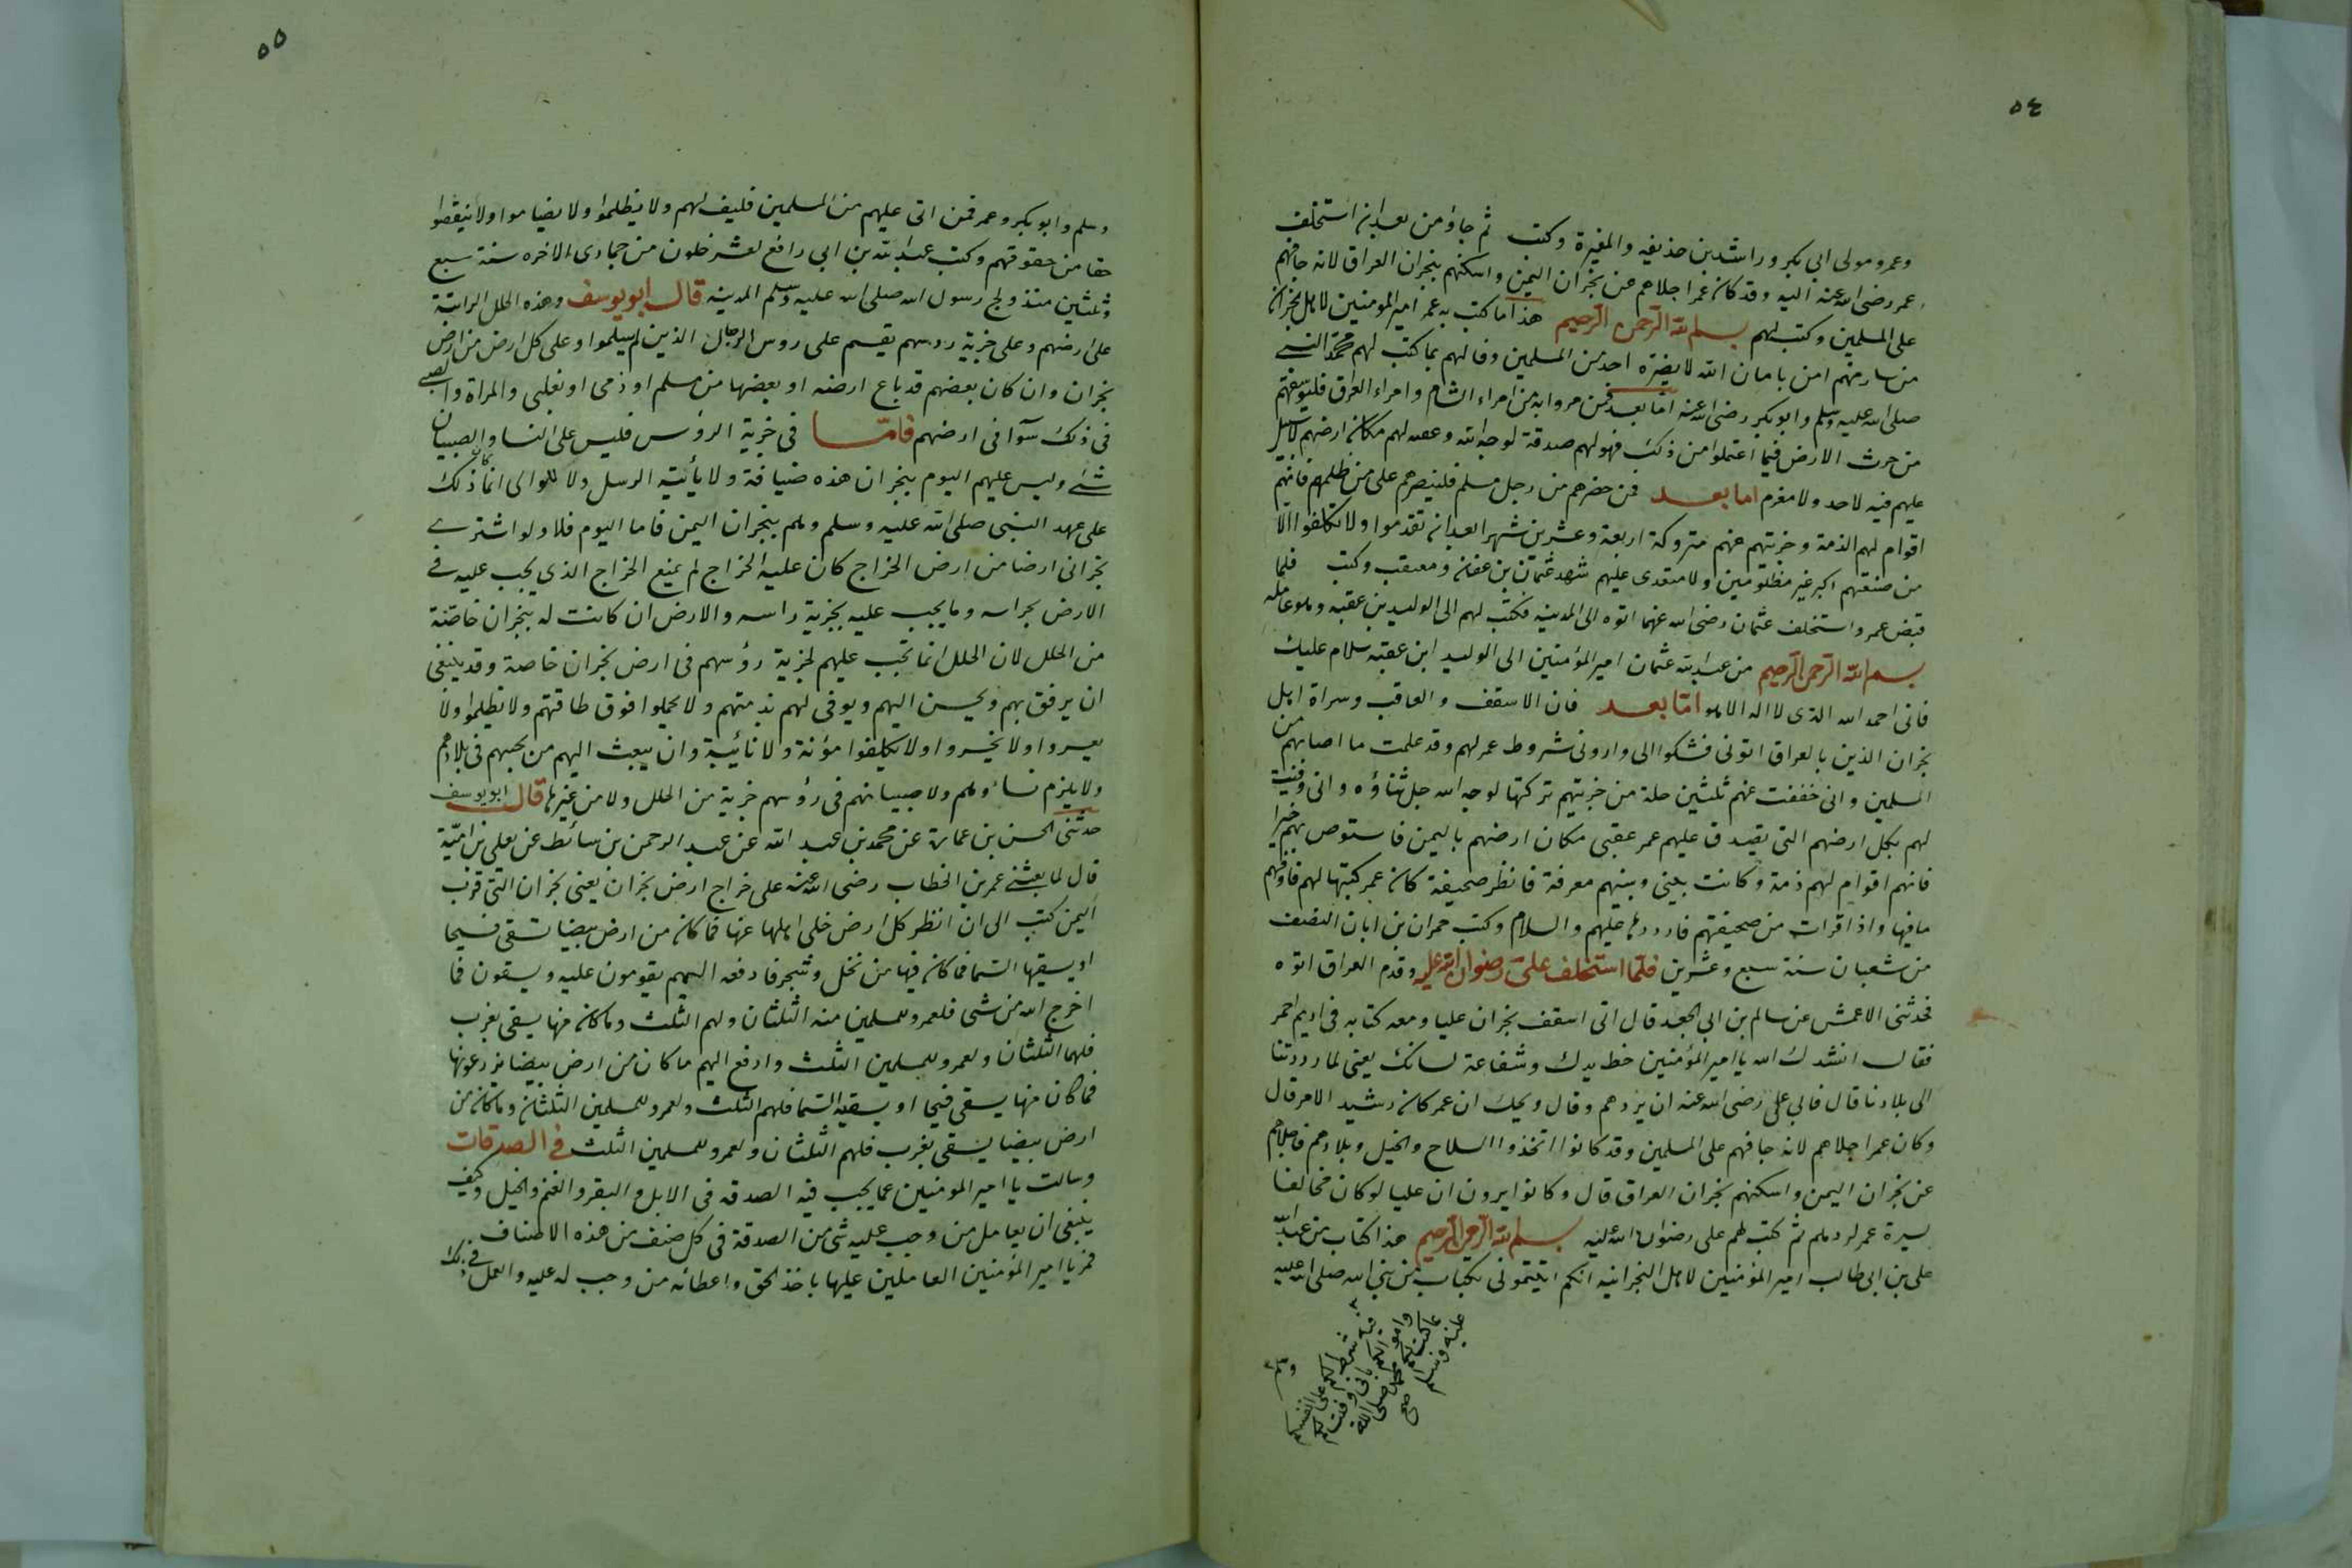 ٥٤
وعمرو مولى ابي بكر وراشد بن حذيفه والمغيرة وكتب ثم جاؤ من بعد ان استخلف
عمر رضى الله عنه اليه وقد كان عمر اجلاهم عن نجران اليمن واسكنهم بنجران العراق لانه خافهم
على المسلمين وكتب لهم بسم الله الرحمن الرحيم هذا ما كتب به عمر امير المومنين لاهل نجران
من سار منهم امن بامان الله لا يضره احد من المسلمين وفا لهم بما كتب لهم محمد النبى
صلى الله عليه وسلم وابو بكر رضى الله عنه اما بعد فمن مروا به من امراء الشام وامراء العراق فليوسقهم
من حرث الارض فيما اعتملوا من ذلك فهو لهم صدقة لوجه الله وعقبه لهم مكان ارضهم لا سبيل
عليهم فيه لاحد ولا مغرم اما بعد فمن حضرهم من رجل مسلم فلينصرهم على من ظلمهم فانهم
اقوام لهم الذمة وجزيتهم عنهم متروكة اربعة وعشرين شهرا بعد ان تقدموا ولا يكلفوا الا
من صنعتهم اكبر غير مظلومين ولا معتدى عليهم شهد عثمان بن عفان ومعيقب وكتب فلما
قبض عمر واستخلف عثمان رضى الله عنهما اتوه الى المدينه فكتب لهم الى الوليد بن عقبه وهو عامله
بسم الله الرحمن الرحيم من عبد الله عثمان امير المؤمنين الى الوليد ابن عقبه سلام عليك
فانى احمد الله الذى لا اله الا هو اما بعد فان الاسقف والعاقب وسراة اهل
نجران الذين بالعراق اتونى فشكوا الى وارونى شروط عمر لهم وقد علمت ما اصابهم من
المسلمين وانى خففت عنهم ثلثين حلة من جزيتهم تركتها لوجه الله جل ثناؤه وانى وفيت
لهم بكل ارضهم التى تصدق عليهم عمر عقبى مكان ارضهم باليمن فاستوص بهم خيرا
فانهم اقوام لهم ذمة وكانت بينى وبينهم معرفة فانظر صحيفة كان عمر كتبها لهم فاوفهم
ما فيها واذا قرات من صحيفتهم فارددها عليهم والسلام وكتب حمران بن ابان النصف
من شعبان سنة سبع وعشرين فلما استخلف على رضوان الله عليه وقدم العراق اتوه
فحدثنى الاعمش عن سالم بن ابى الجعد قال اتى اسقف نجران عليا ومعه كتابه فى اديم احمر
فقال انشدك الله يا امير المؤمنين خط يدك وشفاعة لسانك يعنى لما رددتنا
الى بلادنا قال فابى على رضى الله عنه ان يردهم وقال ويحك ان عمر كان رشيد الامر قال
وكان عمر اجلاهم لانه خافهم على المسلمين وقد كانوا اتخذوا السلاح والخيل وبلادهم فاجلاهم
عن نجران اليمن واسكنهم نجران العراق قال وكانوا يرون ان عليا لو كان مخالفا
لسيرة عمر لردهم ثم كتب لهم على رضوان الله عليه بسم الله الرحمن الرحيم هذا كتاب من عبد الله
على بن ابى طالب امير المؤمنين لاهل النجرانيه انكم اتيتمونى بكتاب من نبى الله صلى الله عليه
فيه شرط لكم على انفسكم
واموالكم وانى وفيت لكم
بما كتب لكم محمد صلى الله
عليه وسلم صح
وسلم
٥٥
وسلم وابو بكر وعمر فمن اتى عليهم من المسلمين فليف لهم ولا يظلموا ولا يضاموا ولا ينتقصوا
حقا من حقوقهم وكتب عبد الله بن ابى رافع لعشر خلون من جمادى الاخره سنة سبع
وثلثين منذ ولج رسول الله صلى الله عليه وسلم المدينه قال ابو يوسف وهذه الحلل الراتبة
على ارضهم وعلى جزية روسهم تقسم على روس الرجال الذين لم يسلموا وعلى كل ارض من ارض
نجران وان كان بعضهم قد باع ارضه او بعضها من مسلم او ذمى او تغلبى والمراة والصبى
فى ذلك سوآ فى ارضهم فامّا فى جزية الرؤس فليس على النسا والصبيان
شئ وليس عليهم اليوم بنجران هذه ضيافة ولا نأئبة الرسل ولا للوالى انما كان ذلك
على عهد النبى صلى الله عليه وسلم وهم بنجران اليمن فاما اليوم فلا ولو اشترى
نجرانى ارضا من ارض الخراج كان عليه الخراج لم يمنع الخراج الذى يجب عليه فى
الارض بخراسه وما يجب عليه بجزية راسه والارض ان كانت له بنجران خاصة
من الحلل لان الحلل انما تجب عليهم لجزية رؤسهم فى ارض نجران خاصة وقد ينبغى
ان يرفق بهم ويحسن اليهم ويوفى لهم بذمتهم ولا يحملوا فوق طاقتهم ولا يظلموا ولا
يعسروا ولا يخسروا ولا يكلفوا مؤنة ولا نائبة وان يبعث اليهم من يجبيهم فى بلادهم
ولا يلزم نساؤهم ولا صبيانهم فى رؤسهم جزية من الحلل ولا من غيرها قال ابو يوسف
حدثنى الحسن بن عمارة عن محمد بن عبد الله عن عبد الرحمن بن سائط عن يعلى بن اميّة
قال لما بعثنى عمر بن الخطاب رضى الله عنه على خراج ارض نجران يعنى نجران التى قرب
اليمن كتب الى ان انظر كل ارض خلى اهلها عنها فما كان من ارض بيضا تسقى فسيحا
او يسقها السما فما كان فيها من نخل وشجر فادفعه اليهم يقومون عليه ويسقون فما
اخرج الله من شى فلعمر وللمسلمين منه الثلثان ولهم الثلث وما كان منها يسقى بغرب
فلهما الثلثان ولعمر وللمسلمين الثلث وادفع اليهم ما كان من ارض بيضا يزرعونها
فما كان منها يسقى فيحا او يسقيه السما فلهم الثلث ولعمر وللمسلمين الثلثان وما كان من
ارض بيضا يسقى بغرب فلهم الثلثان ولعمر وللمسلمين الثلث فى الصدقات
وسالت يا امير المومنين عما يجب فيه الصدقه فى الابل والبقر والغنم والخيل وكيف
ينبغى ان يعامل من وجب عليه شى من الصدقة فى كل صنف من هذه الاصناف
فمر يا امير المؤمنين العاملين عليها باخذ الحق واعطائه من وجب له عليه والعمل فى ذلك